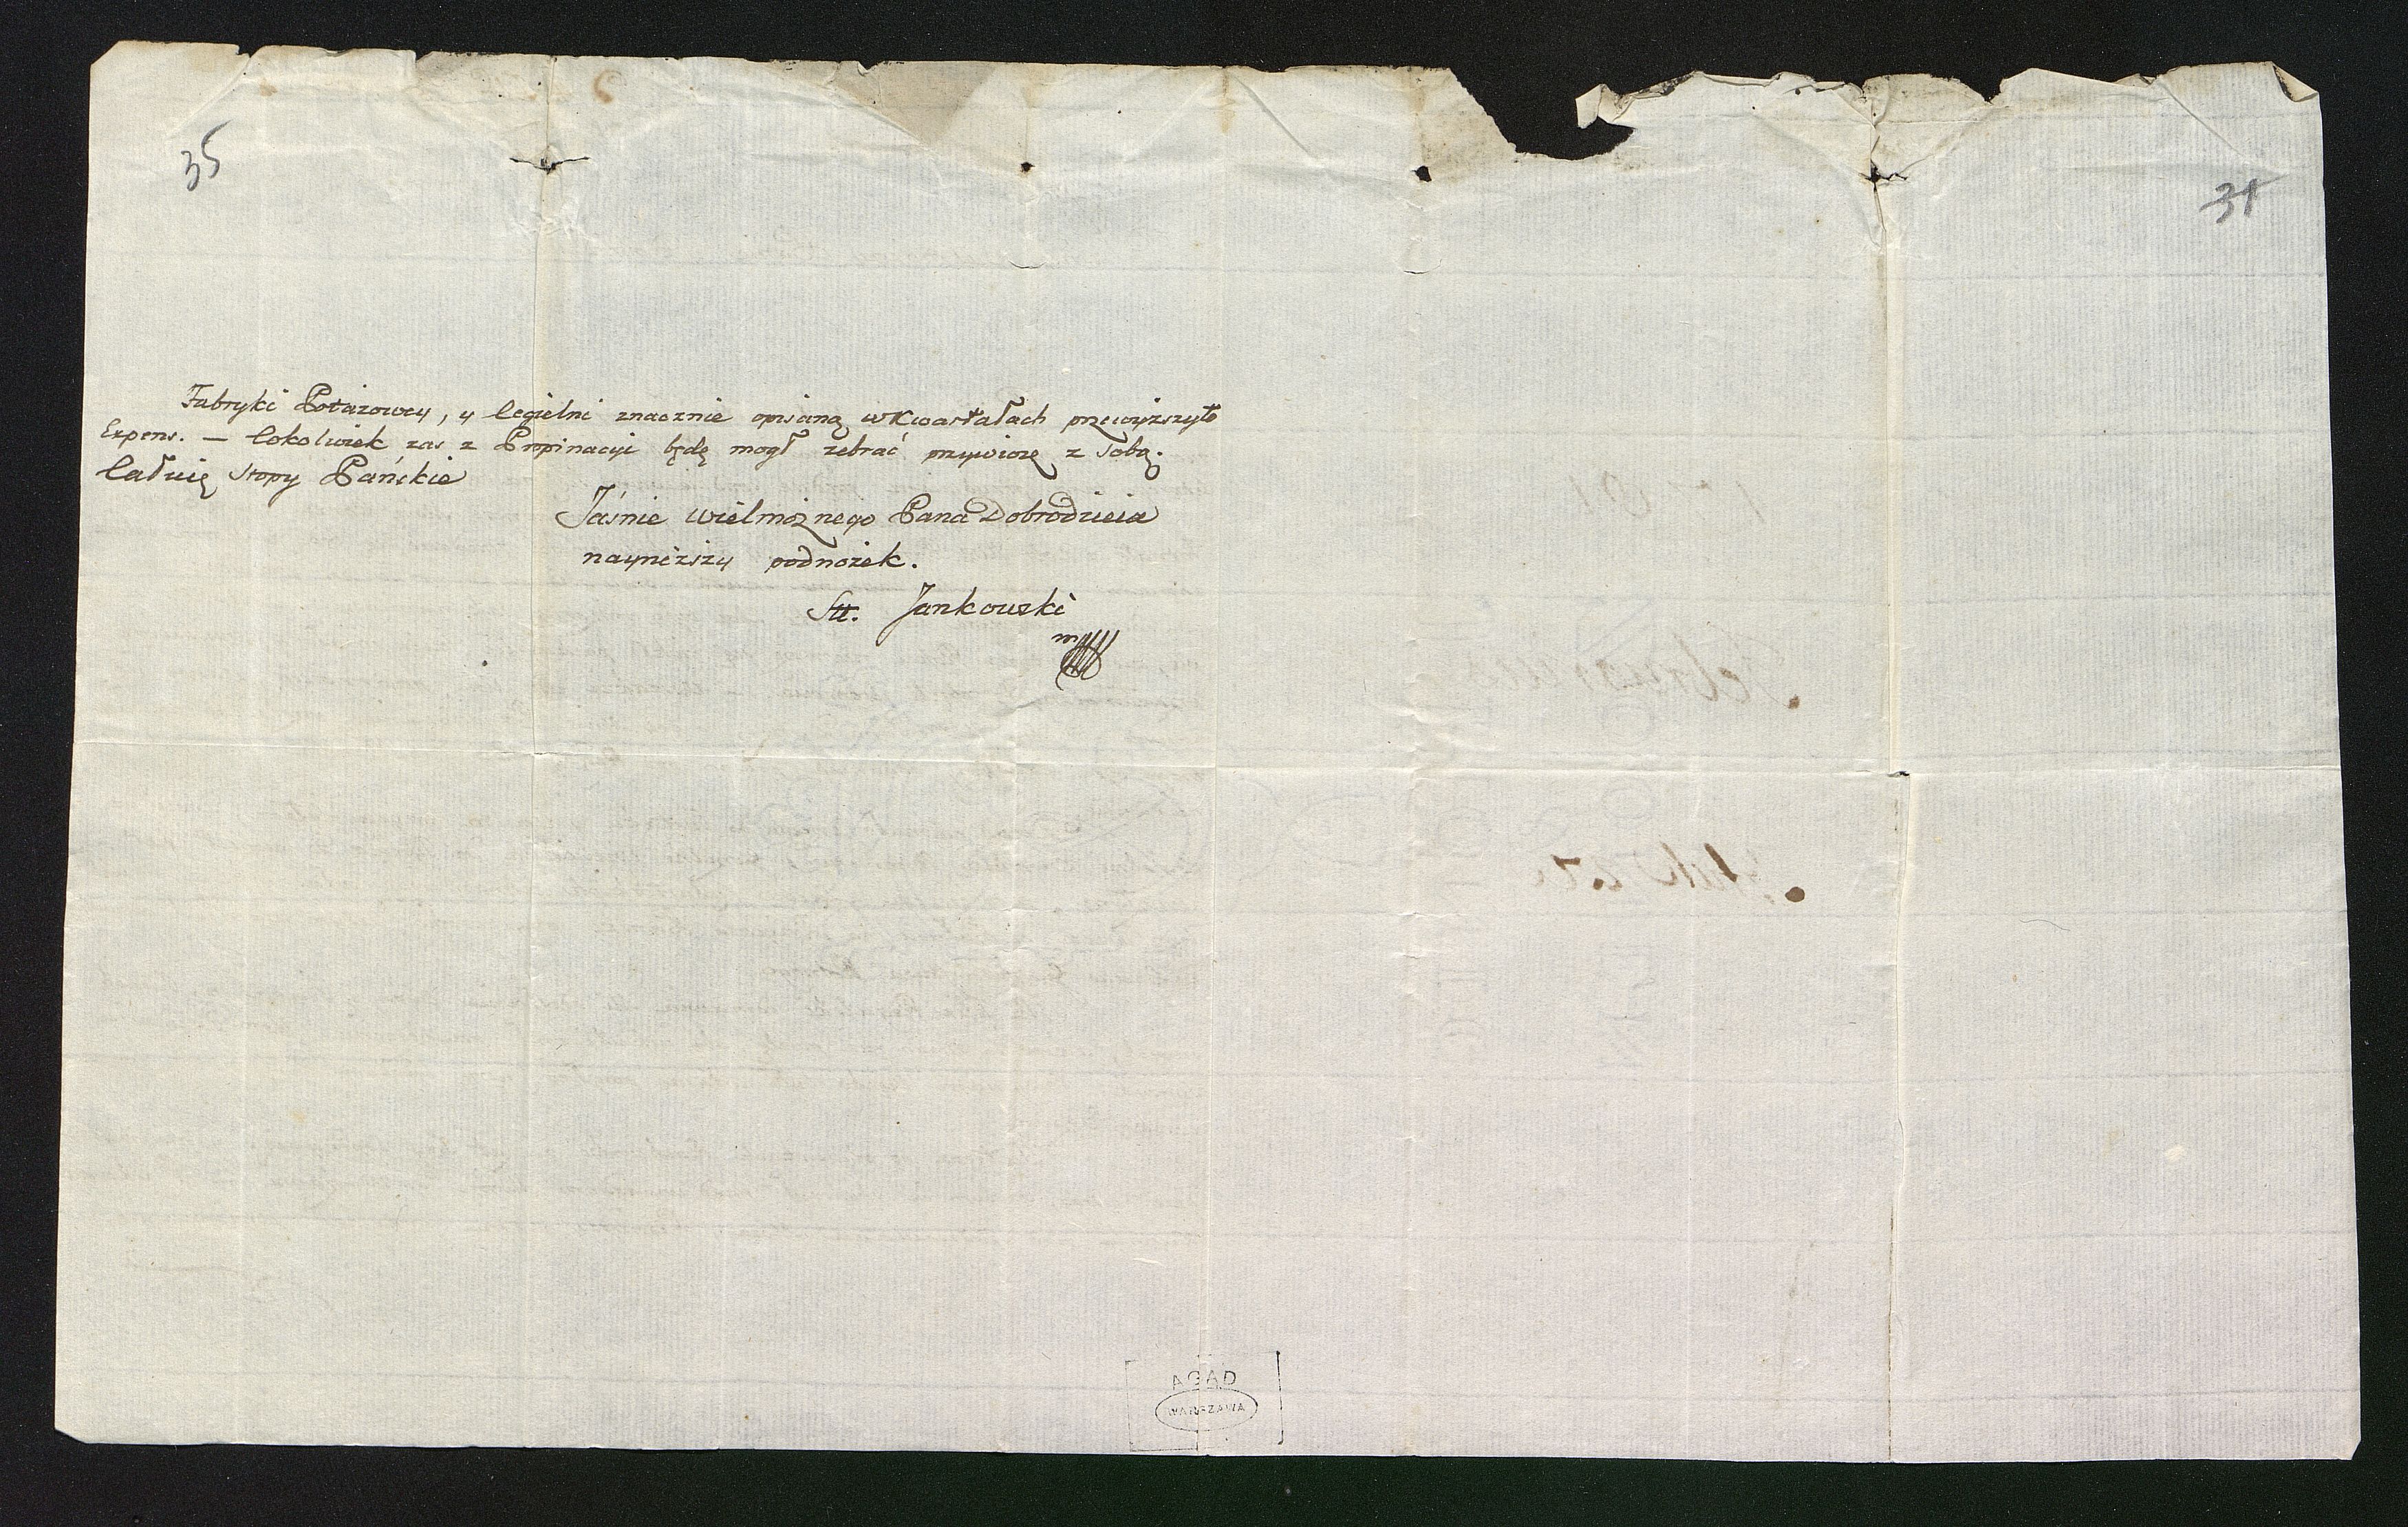 35
31
Fabryki Potażowey, y Cegielni znacznie opisaną w Kwartałach przewyższyło
Expens. — Cokolwiek zas z Propinacyi będę mogł zebrać przywiozę z sobą.
Całuię Stopy Pańskie
Jaśnie Wielmożnego Pana Dobrodzieia
nayniższy podnożek.
Jankowski
AGAD
WARSZAWA